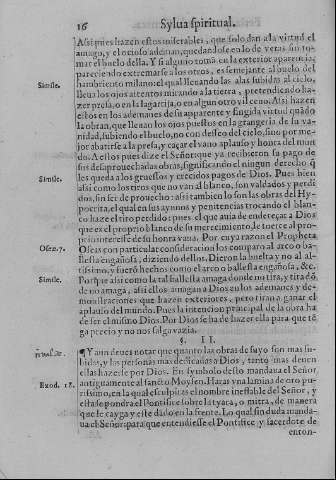 16 Sylua spiritual.
Assi pues hazen estos miserables, que solo dan a la virtud el
amago, y el ocioso ademan, quedandose en lo de veras sin to-
mar el buelo della. Y si alguno toma en la exterior aparencia,
pareciendo extremarse a los otros, es semejante al buelo del
Simile. hambriento milano: el qual lleuando las alas subidas al cielo,
lleua los ojos atentos mirando a la tierra, pretendiendo ha-
zer presa, o en la lagartija, o en algun otro vil ceuo. Assi hazen
estos en los ademanes de su apparente y fingida virtud quãdo
la obran, que lleuan los ojos puestos en la grangeria de su va-
nidad, subiendo el buelo, no con desseo del cielo, sino por me-
jor abatirse a la presa, y caçar el vano aplauso y honra del mun
do. A estos pues dize el Señor que ya recibieron su pago de
sus desaprouechadas obras, significando el ningun derecho q̃
les queda a los gruessos y crecidos pagos de Dios. Pues bien
Simile. assi como los tiros que no van al blanco, son valdados y perdi
dos, sin ser de prouecho: assi tambien lo son las obras del Hy-
pocrita, el qual en sus ayunos y penitencias trocando el blan-
co haze el tiro perdido: pues el que auia de endereçar a Dios
que es el proprio blanco de su merecimiento, le tuerce al pro-
prio interesse de su honra vana. Por cuya razon el Propheta
Osea. 7. Oseas con particular consideracion los comparo al arco o ba-
llesta engañosa, diziendo dellos: Dieron la buelta y no al al-
tissimo, y fuerõ hechos como el arco o ballesta engañosa, &c.
Simile. Porque assi como la tal ballesta amaga donde no tira, y tira dõ
de no amaga, assi ellos amagan a Dios en los ademanes y de-
monstraciones que hazen exteriores, pero tiran a ganar el
aplauso del mundo. Pues la intencion principal de la obra ha
de ser el mismo Dios. Por Dios se ha de hazer ella para que tẽ
ga precio y no nos salga vazia.
§. II.
¶ Y aun deues notar que quanto las obras de suyo son mas su-
bidas, y las personas mas dedicadas a Dios, tanto mas deuen
ellas hazerse por Dios. En symbolo desto mandaua el Señor
Exod. 28. antiguamente al sancto Moysen: Haras vna lamina de oro pu-
rissimo, en la qual esculpiras el nombre ineffable del Señor, y
esta se pondra el Pontifice sobre la tyara, o mitra, de manera
que le cayga y este dado en la frente. Lo qual sin duda manda-
ua el Señor para que entendiesse el Pontifice y sacerdote de
enton-